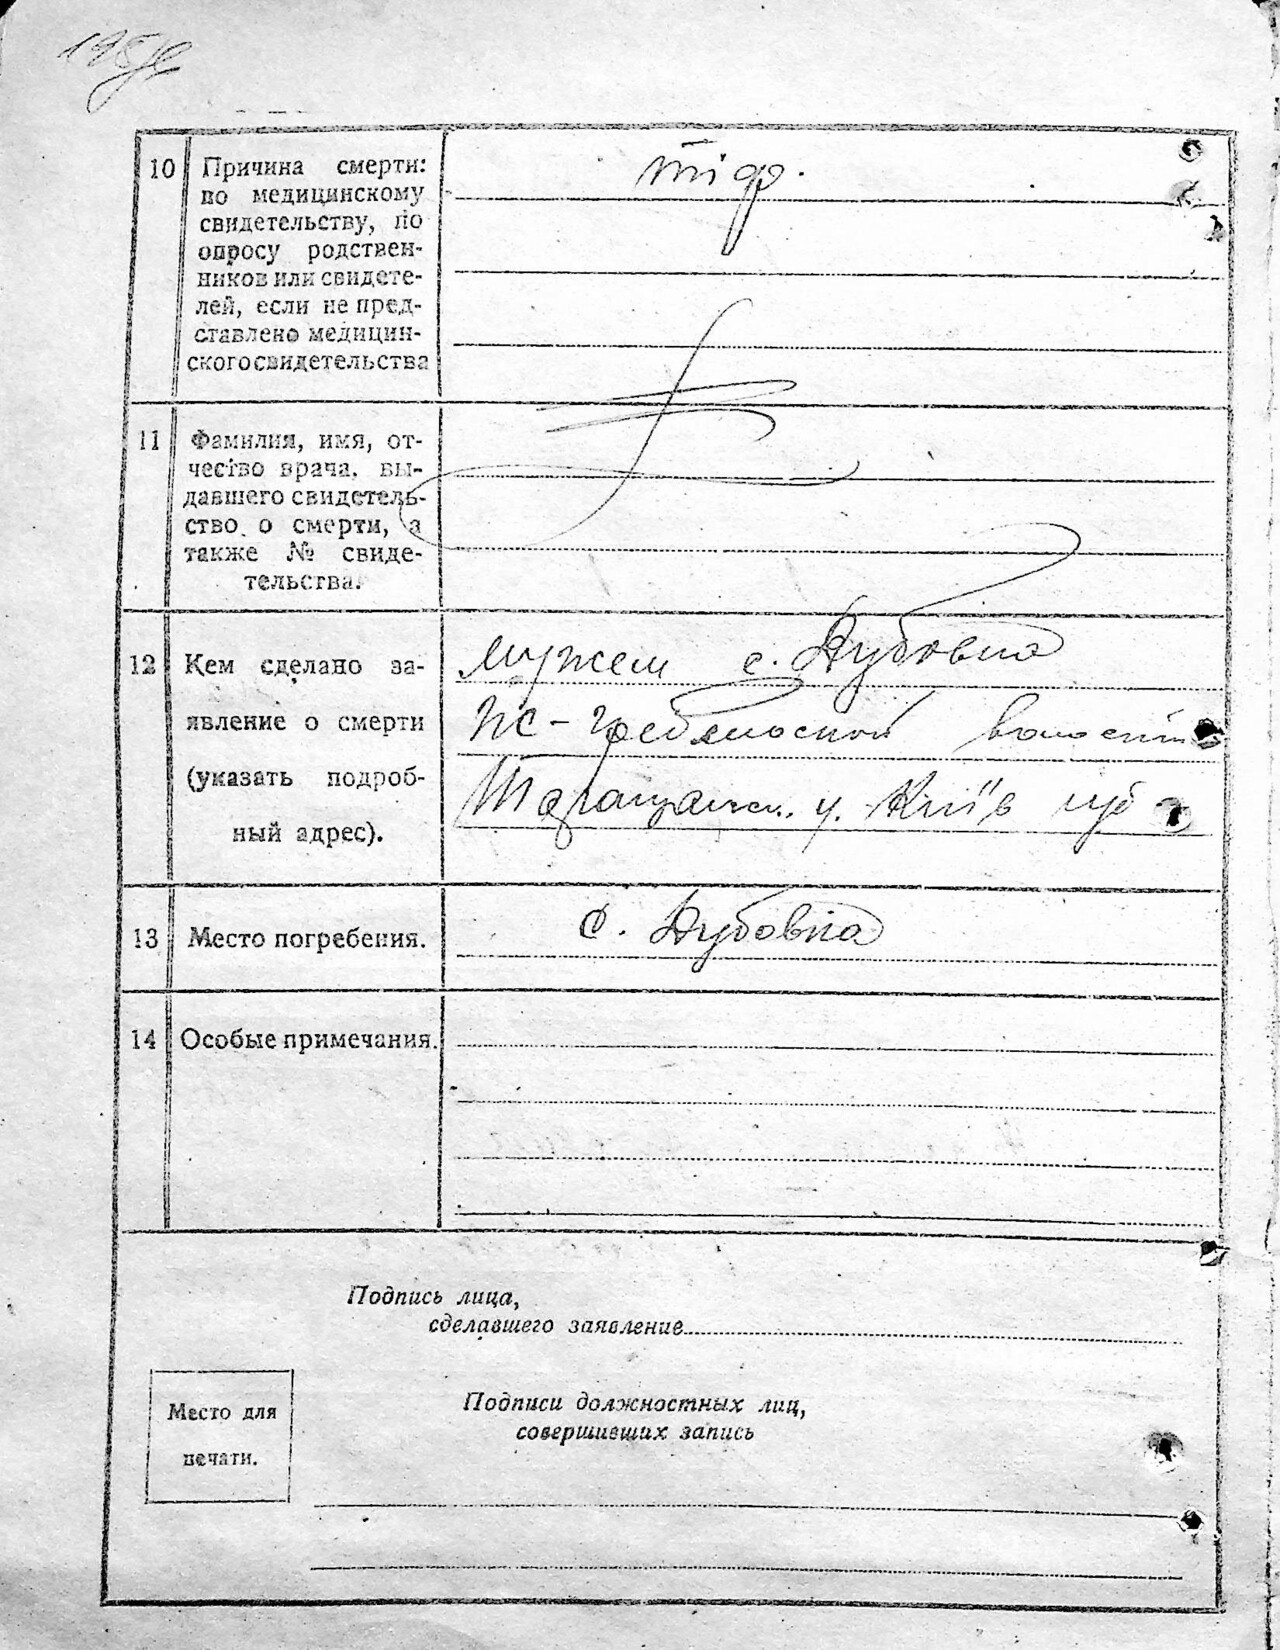 10 Причина смерти:
по медицинскому
свидетельству, по
опросу родствен-
ников или свидете-
лей, если не пред-
ставлено медицин-
ского свидетельства
тіф.
11 Фамилия, имя, от-
чество врача, вы-
давшего свидетель-
ство о смерти, а
также № свиде-
тельства.
12 Кем сделано за-
явление о смерти
(указать подроб-
ный адрес).
мужем с. Дубовка
волости
Таращанск. у. Київ губ
13 Место погребения.
с. Дубовка
14 Особые примечания.
Подпись лица,
сделавшего заявление
Место для
печати.
Подписи должностных лиц,
совершивших запись